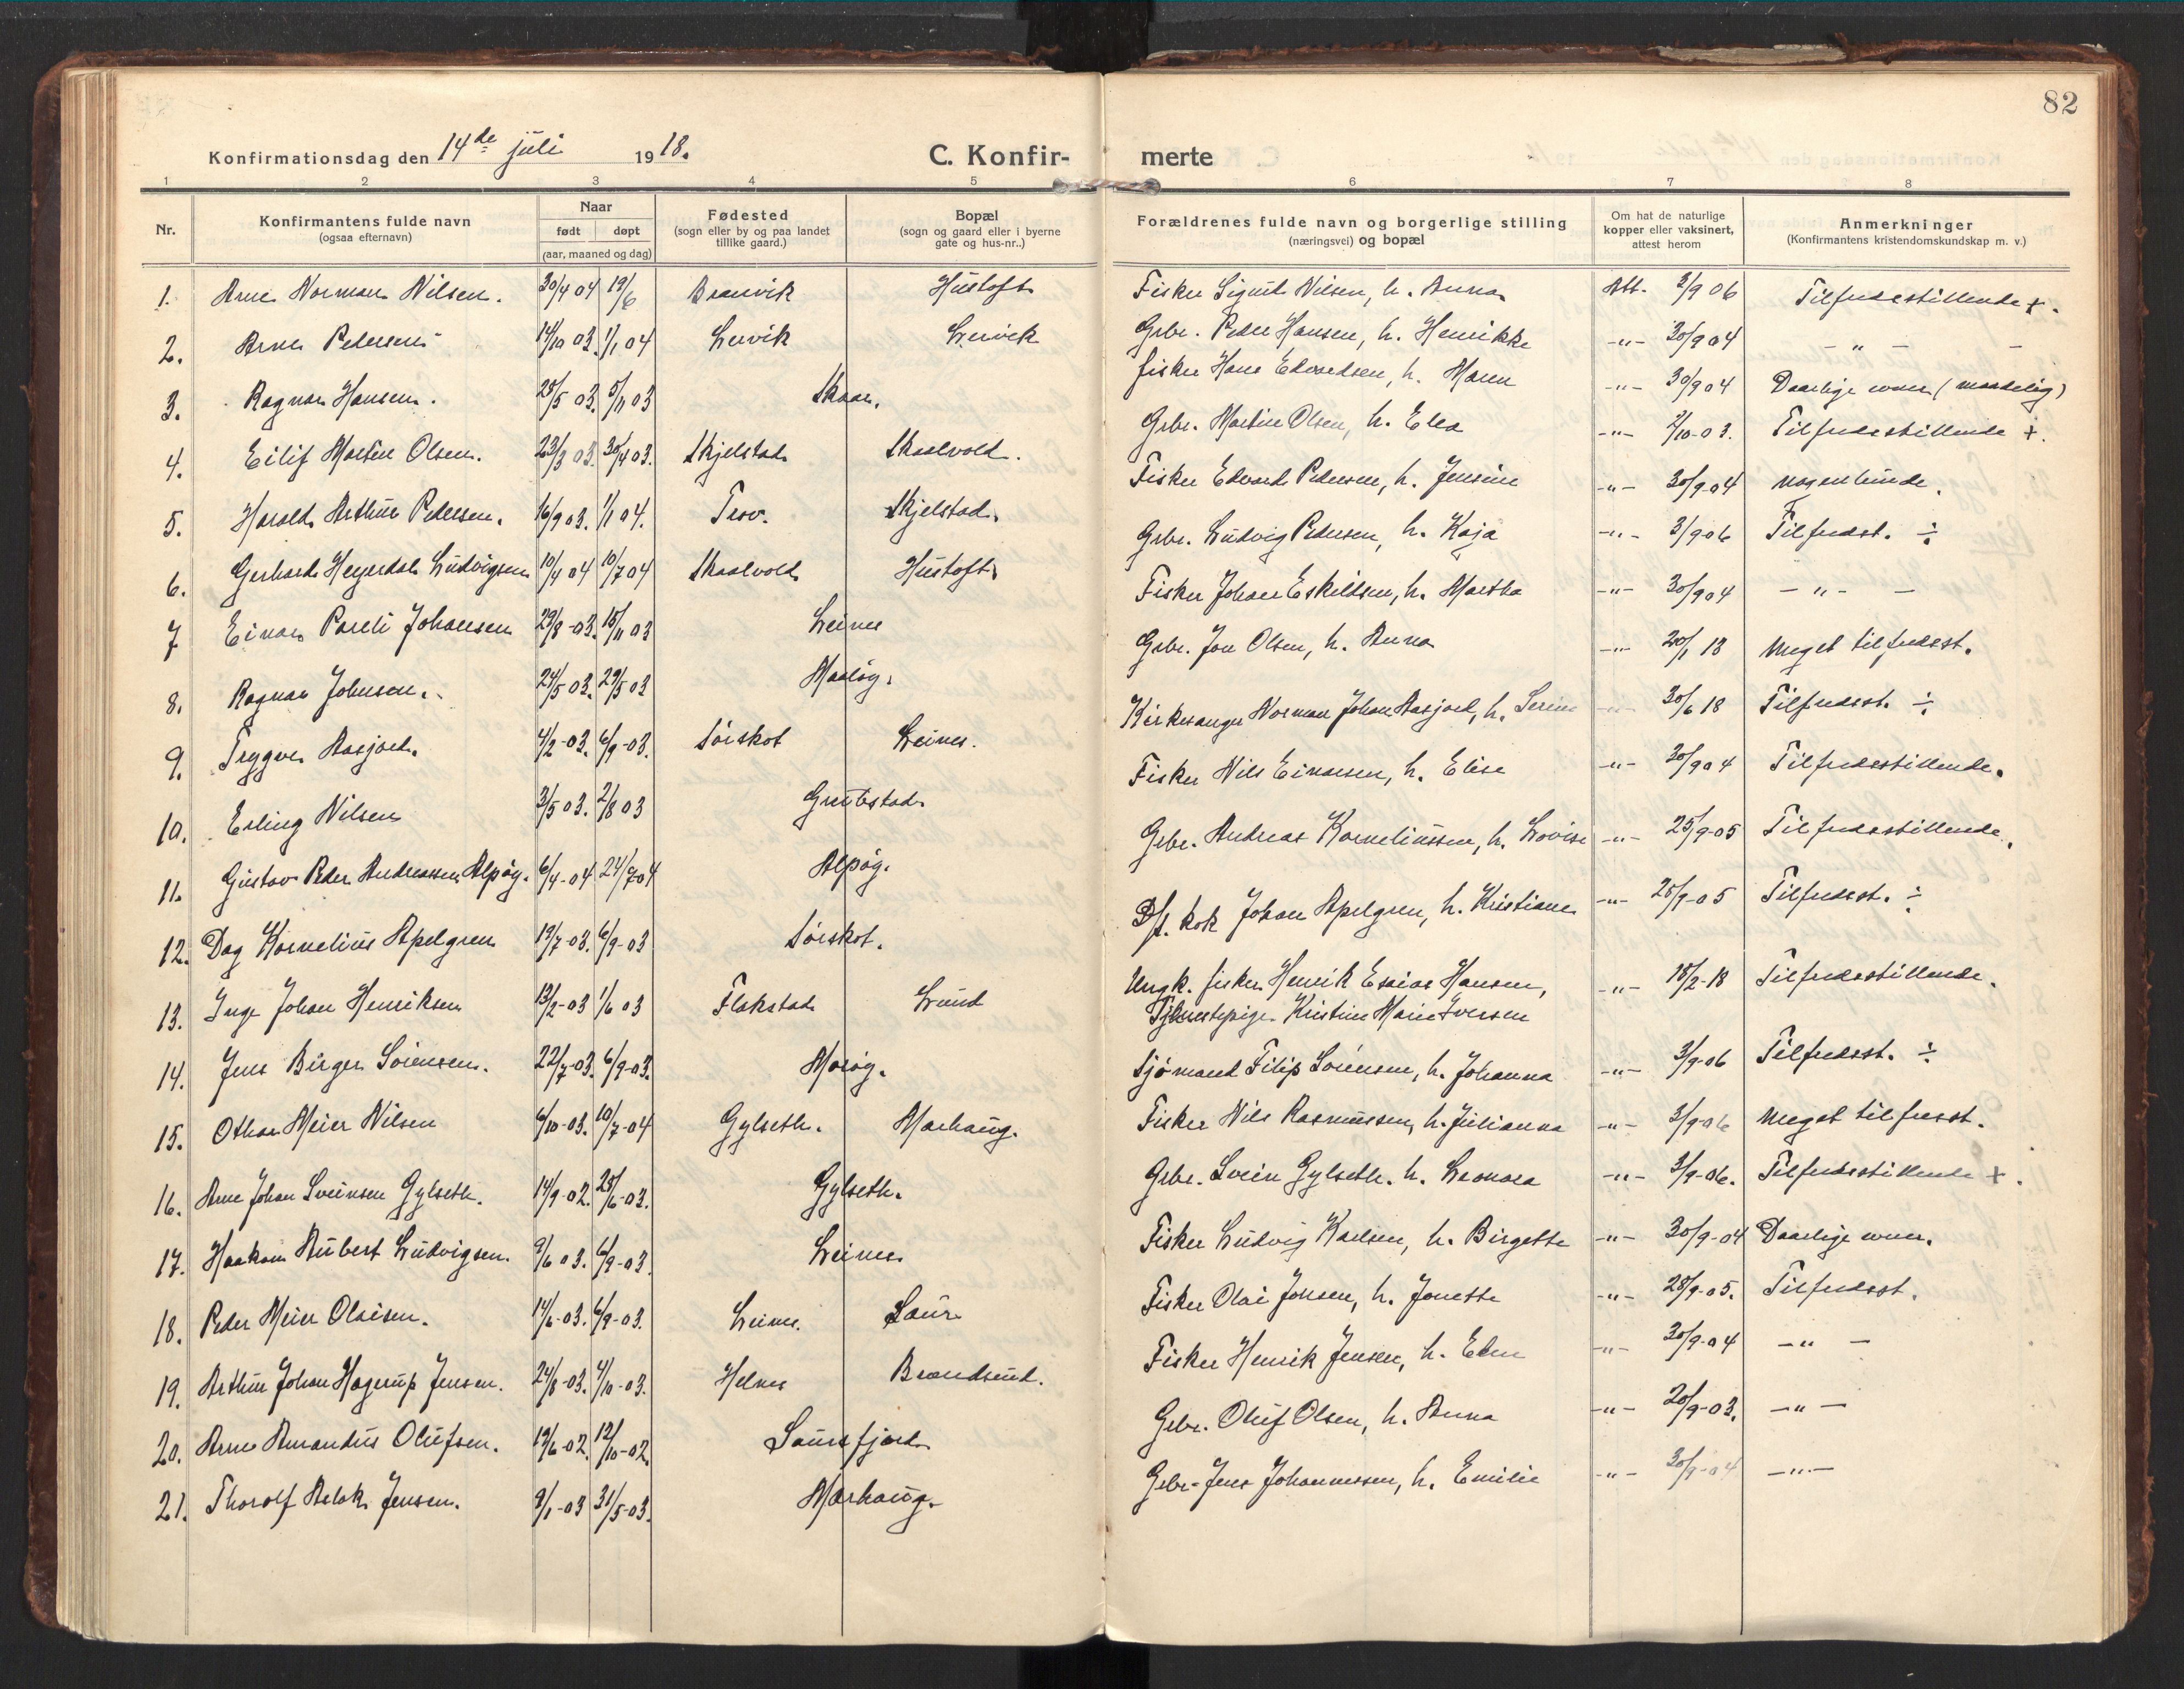 82
Konfirmationsdag den 14de juli 1918.
C. Konfir-
merte
1 2 3 4 5 6 7 8
Nr.
Konfirmantens fulde navn
(ogsaa efternavn)
Naar
født døpt
(aar, maaned og dag)
Fødested
(sogn eller by og paa landet
tillike gaard.)
Bopæl
(sogn og gaard eller i byerne
gate og hus-nr..)
Forældrenes fulde navn og borgerlige stilling
(næringsvei) og bopæl
Om hat de naturlige
kopper eller vaksinert,
attest herom
Anmerkninger
(Konfirmantens kristendomskundskap m. v.)
1. Arne Norman Nilsen. 30/4 04 19/6 Hustoft Fisker Sigurd Nilsen, h. Anna Att. 3/9 06 Tilfredsstillende +.
2. Arne Pedersen 14/10 03. 1/1 04 Lervik Leirvik Gbr. Peder Hansen, h. Henrikke -"- 30/9 04 - " - -
3. Ragnar Hansen. 25/5 03. 5/11 03 Skaar. fisker Hans Edvardsen, h. Maren -"- 30/9 04 Daarlige evner (maadelig)
4. Eilif Martin Olsen. 23/3 03. 30/4 03. Skjelstad Skaalvold. Grbr. Martin Olsen, h. Elea -"- 2/10-03. Tilfredsstillende +.
5. Harald Arthur Pedersen. 16/9 03. 1/1 04. Skjelstad. Fisker Edvard Pedersen, h. Jensine -"- 30/9-04 Nogenlunde.
6. Gerhard Heyerdal Ludvigsen 10/4 04 10/7 04 Skaalvold Hustoft. Grbr. Ludvig Pedersen, h. Kaja -"- 3/9 06 Tilfredst. ÷
7 Einar Pareli Johansen 29/8-03. 15/11 03 Leines Fisker Johan Eskildsen, h. Martha -"- 30/9 04 - " - -
8. Ragnar Johnsen. 24/5 03. 29/5 03 Maaløy. Grbr. Jon Olsen, h. Anna -"- 20/1 18 Meget tilfredsst.
9. Trygve Aasjord. 4/2-03. 6/9-03. Sørskot Leines. Kirkesanger Norman Johan Aasjord, h. Serine -"- 30/6 18 Tilfredsst. ÷
10. Erling Nilsen 3/5 03. 2/8 03 Grubstad Fisker Nils Einarsen, h. Elise -"- 30/9 04 Tilfredsstillende.
11. Gustav Peder Andreassen Alpøy. 6/4-04 24/7 04 Alpøy. Grbr. Andreas Korneliussen, h. Lovise -"- 25/9-05 Tilfredsstillende.
12. Dag Kornelius Apelgren 19/7-03. 6/9-03 Sørskot. D/s. kok Johan Apelgren, h. Kristiane -"- 25/9-05 Tilfredsst. ÷
13. Inge Johan Henriksen 13/2-03 1/6 03 Flakstad Lund Ungk. fisker Henrik Esaias Hansen, -"- 15/2-18 Tilfredsstillende.
Tjenestepige Kristine Marie Iversen
14. Jens Birger Sørensen. 22/7-03. 6/9-03. Maløy. Sjømand Filip Sørensen, h. Johanna -"- 3/9-06 Tilfredsst. ÷
15. Othar Meier Nilsen 6/10-03. 10/7-04 Gylseth. Marhaug. Fisker Nils Rasmussen, h. Julianna -"- 3/9-06 Meget tilfredsst.
16. Arne Johan Sveinsen Gylseth. 14/9-02. 28/6-03. Gylseth. Grbr. Svein Gylseth. h. Leonora -"- 3/9-06. Tilfredsstillende +.
17. Haakon Aubert Ludvigsen. 9/6 03. 6/9-03. Leines. Fisker Ludvig Karlsen, h. Birgitte -"- 30/9-04 Daarlige evner.
18. Peder Meier Olaisen. 14/6-03. 6/9-03. Leines. Saur Fisker Olai Jonsen, h. Jonette -"- 28/9-05. Tilfredsst.
19. Arthur Johan Hagerup Jensen. 24/8-03. 4/10-03. Helnes Brandsund. Fisker Henrik Jensen, h. Elen -"- 30/9-04 - " -
20. Arne Amandus Olufsen. 19/6-02. 12/10-02. Saursfjord Grbr. Oluf Olsen, h. Anna -"- 20/9-03. - " -
21. Thorolf Aslak Jensen. 9/1-03 31/5-03. Marhaug. Grbr. Jens Johannessen, h. Emilie -"- 30/9-04 - " -